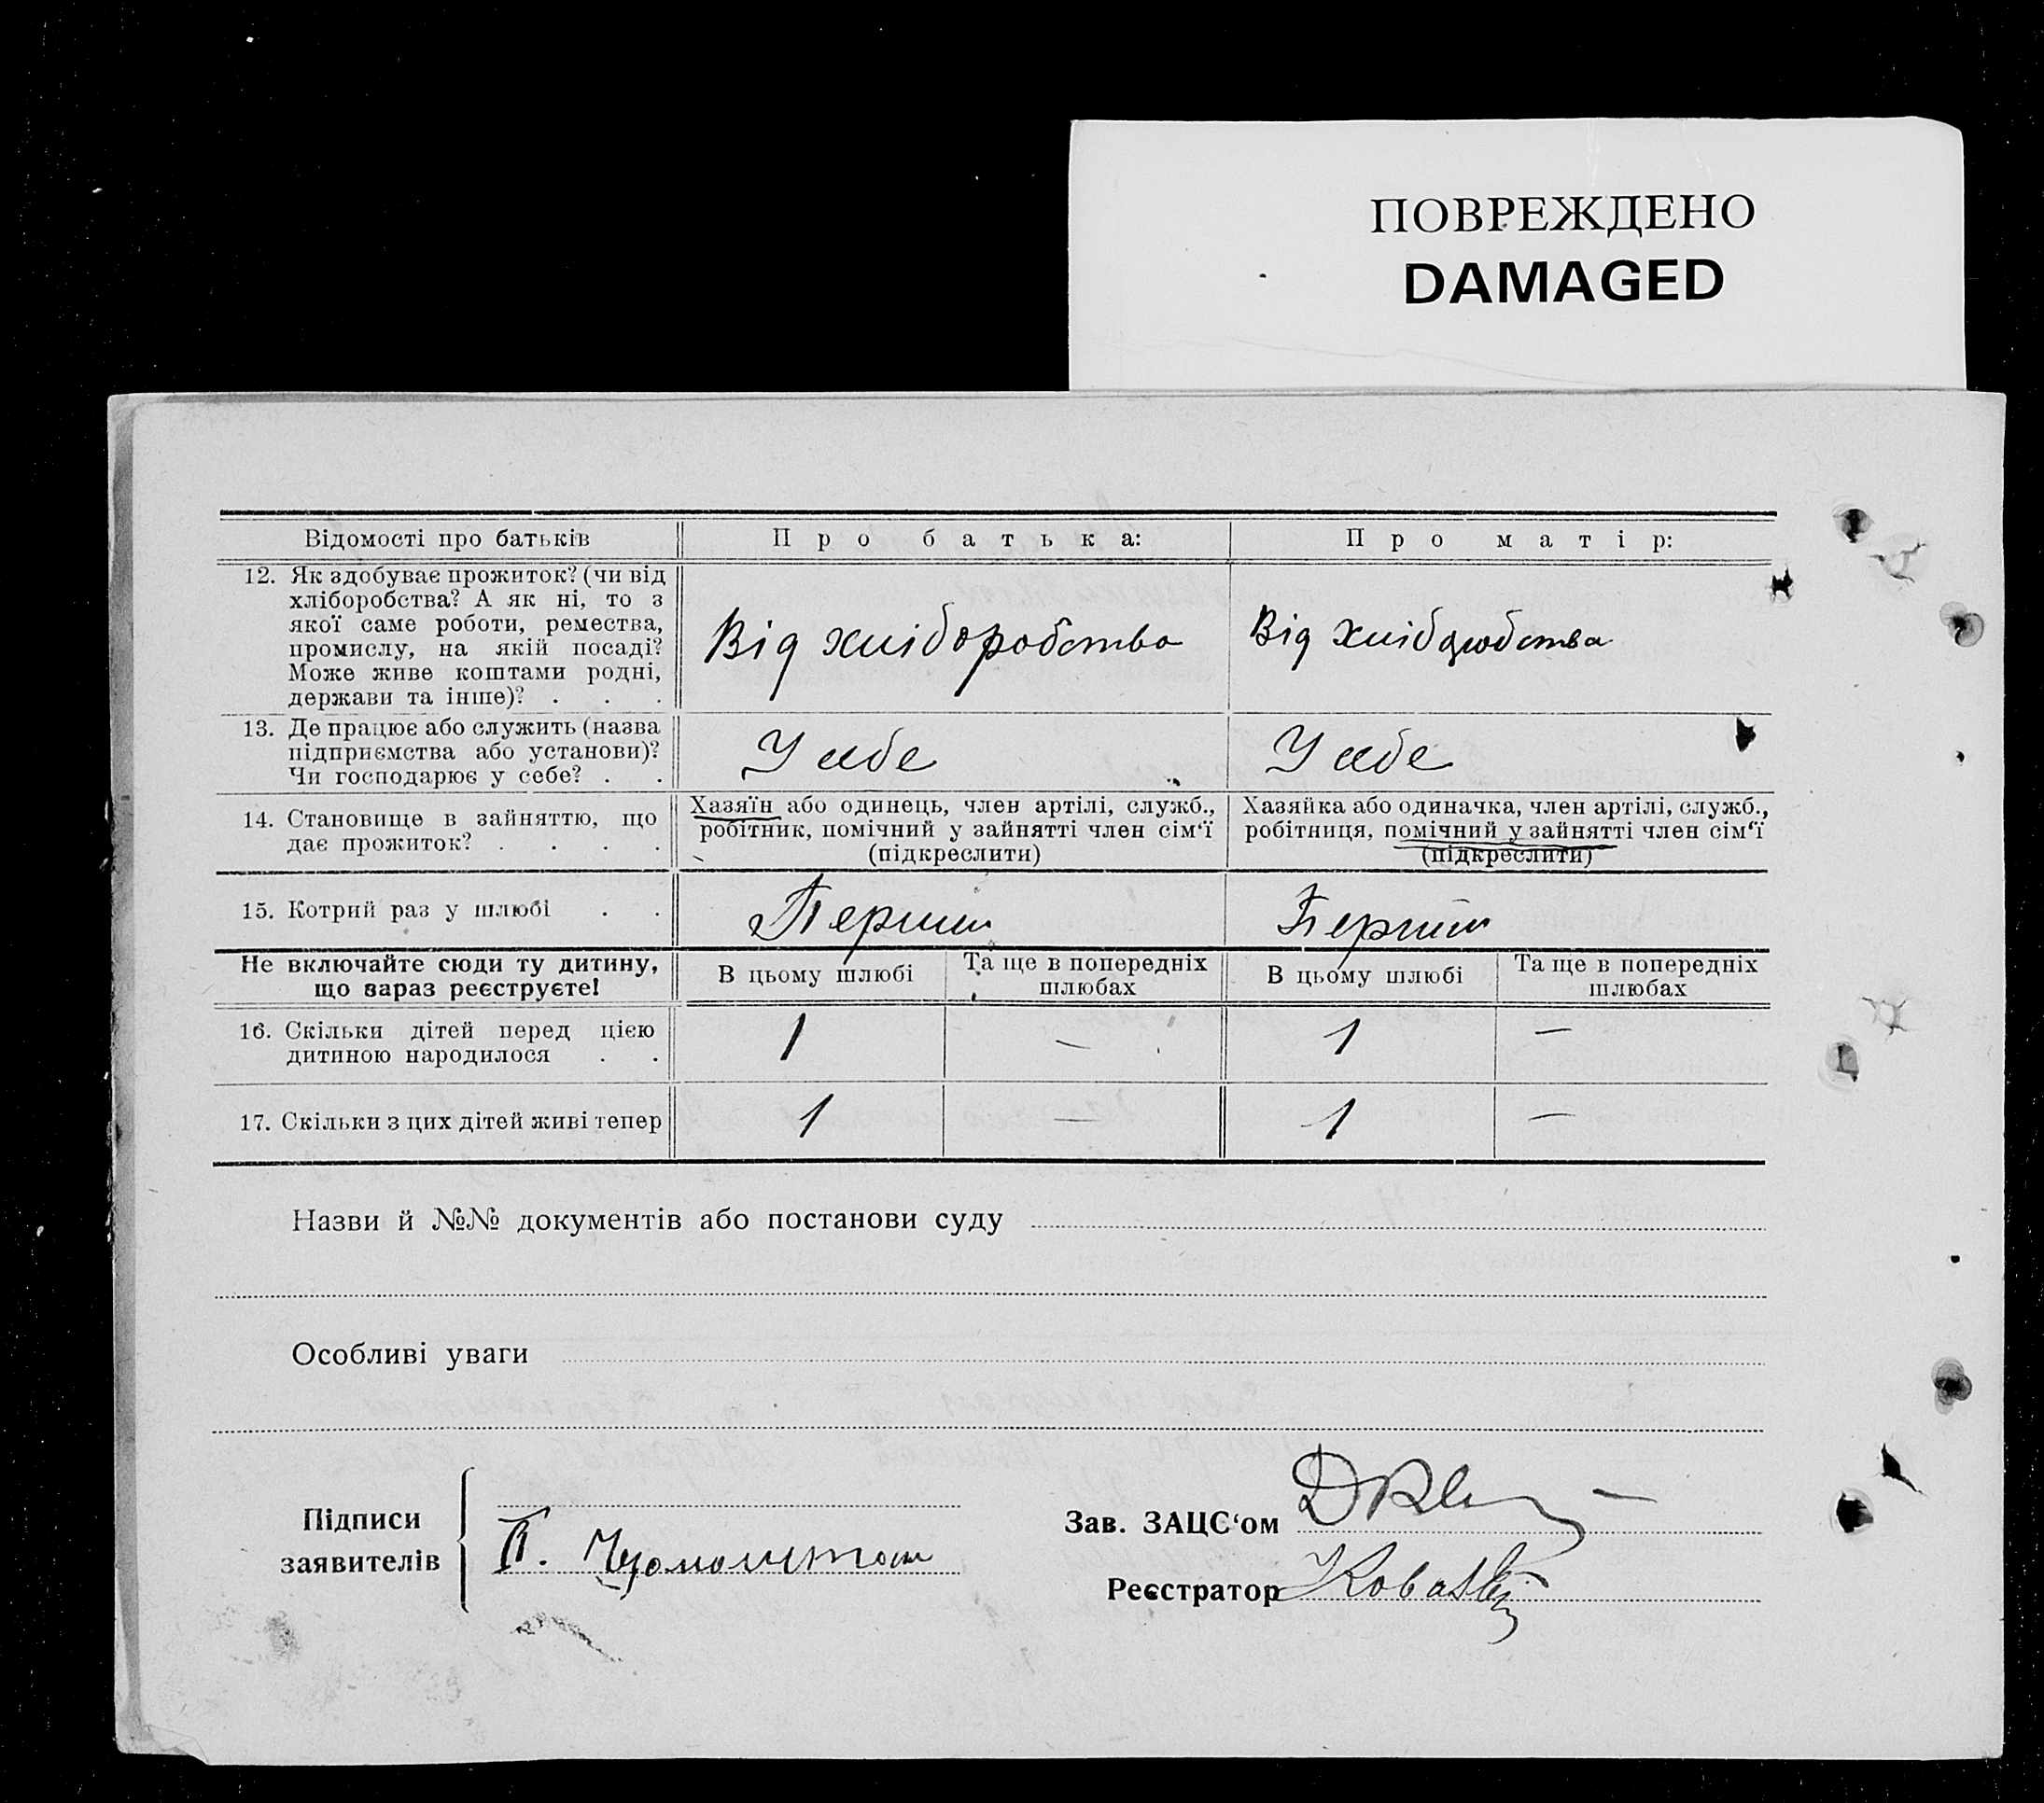 ПОВРЕЖДЕНО
DAMAGED
Відомості про батьків
Про батька:
Про матір:
12. Як здобуває прожиток? (чи від
хліборобства? А як ні, то з
якої саме роботи, ремества,
промислу, на якій посаді?
Може живе коштами родні,
держави та інше)? . . .
Від хліборобства
Від хліборобства
13. Де працює або служить (назва
підприємства або установи)?
Чи господарює у себе? . .
У себе
У себе
14. Становище в зайняттю, що
дає прожиток? . . . .
Хазяїн або одинець, член артілі, служб.,
робітник, помічний у зайнятті член сім‘ї
(підкреслити)
Хазяйка або одиначка, член артілі, служб.,
робітниця, помічний у зайнятті член сім‘ї
(підкреслити)
15. Котрий раз у шлюбі . .
Перший
Перший
Не включайте сюди ту дитину,
що зараз реєструєте!
В цьому шлюбі
Та ще в попередніх
шлюбах
В цьому шлюбі
Та ще в попередніх
шлюбах
16. Скільки дітей перед цією
дитиною народилося . .
1 — 1 —
17. Скільки з цих дітей живі тепер
1 — 1 —
Назви й №№ документів або постанови суду
Особливі уваги
Підписи
заявителів
П.
Зав. ЗАЦС‘ом
Реєстратор